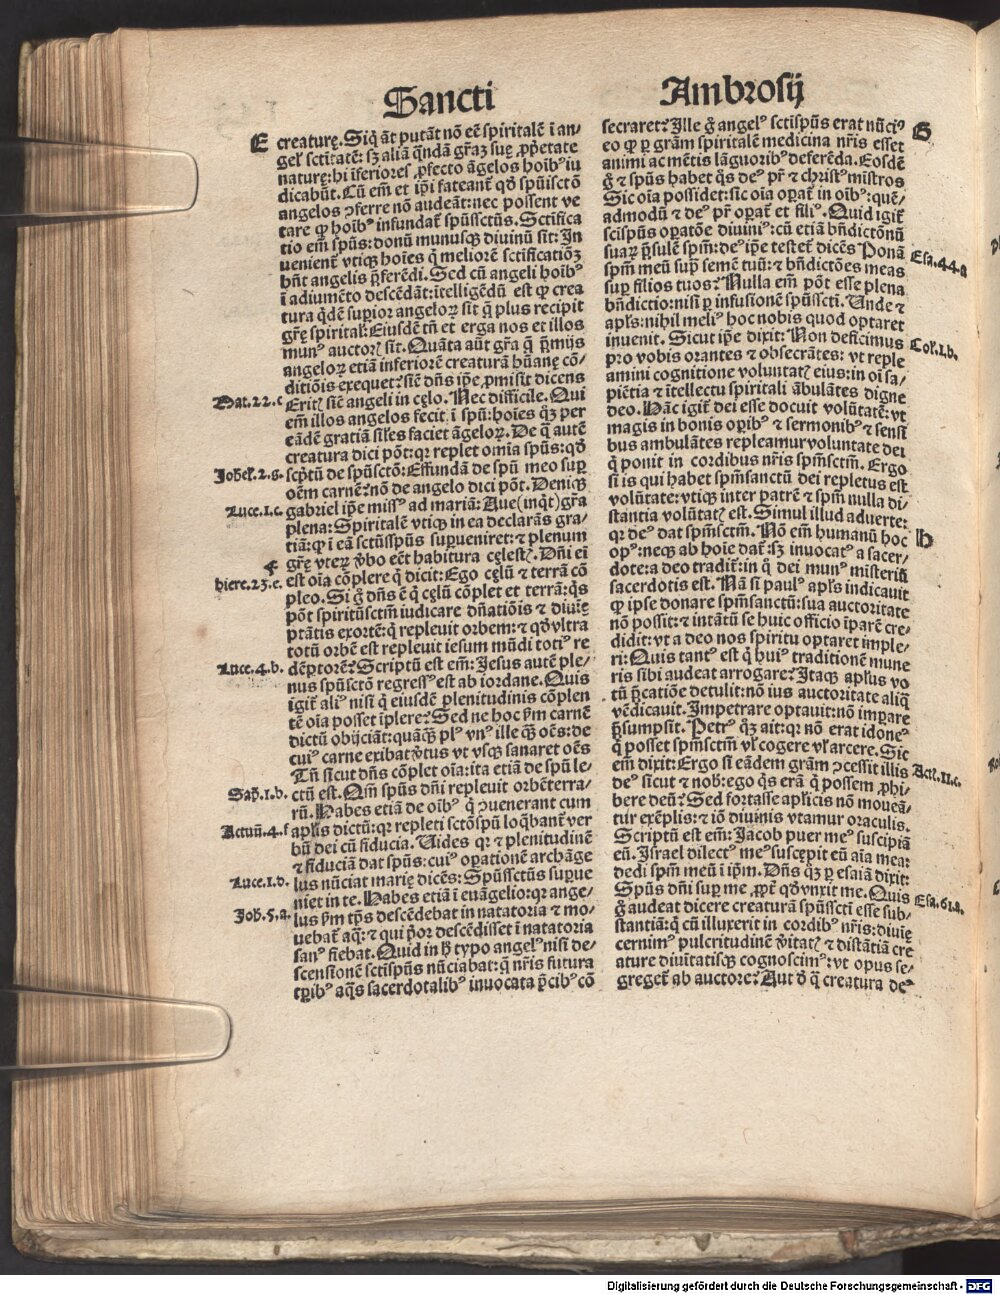 Sancti
Ambrosij
E
creaturę. Siq̃ āt putāt nō eē spiritalē i an-
gel' sctitatē: sz aliā q̃ndā gr̄az suę ꝓpetate
naturę: hi īferiores ꝓfecto āgelos hoībꝰ iu
dicabūt. Cū em̄ et ip̄i fateant᷑ qđ spūisctō
angelos ꝯferre nō audeāt: nec possent ve
tare qꝫ hoībꝰ infundat᷑ spūssctūs. Sctifica
tio em̄ spūs: donū munusqꝫ diuinū sit: In
uenient᷑ vtiqꝫ hoīes q̄ meliorē sctificatiōꝫ
bn̄t angelis p̄ferēdi. Sed cū angeli hoībꝰ
ī adiumēto descēdāt: ītelligēdū est qꝫ crea
tura qdē supior angeloꝝ sit q̄ plus recipit
gr̄ę spirital'. Eiusdē tn̄ et erga nos et illos
munꝰ auctorꝭ sit. Quāta aūt gr̄a q̄ p̄mijs
angeloꝝ etiā inferiorē creaturā hūanę cō-
ditiōis exequet᷑: siē dn̄s ip̄e ꝓmisit dicens
Mat.22.c
Eritꝭ siē angeli in cęlo. Nec difficile. Qui
em̄ illos angelos fecit ī spū: hoīes qꝫ per
eādē gratiā sil'es faciet āgeloꝝ. De q̄ autē
creatura dici pōt: qꝛ replet omīa spūs: qđ
Johel'.2.g.
scp̄tū de spūsctō: Effundā de spū meo sup
oēm carnē: nō de angelo dici pōt. Deniqꝫ
Luce.1.c.
gabriel ip̄e missꝰ ad mariā: Aue (inq̄t) gr̄a
plena: Spiritalē vtiqꝫ in ea declarās gra-
tiā: qꝫ ī eā sctūsspūs supueniret: ⁊ plenum
F
gr̄ę vterꝝ v̄bo eēt habitura cęlestꝭ. Dn̄i ei
hiere.23.e.
est oīa cōplere q̄ dicit: Ego cęlū ⁊ terrā cō
pleo. Si g̊ dn̄s ē q̄ cęlū cōplet et terrā: q̄s
pōt spiritūsctm̄ iudicare dn̄atiōis ⁊ diuīę
ptātis exortē: q̄ repleuit orbem: ⁊ qđ vltra
totū orbē est repleuit iesum mūdi totiꝰ re
Luce.4.b.
dēptorē? Scriptū est em̄: Jesus autē ple-
nus spūsctō regressꝰ est ab iordane. Quis
igit᷑ aliꝰ nisi q̄ eiusdē plenitudinis cōplen
tē oīa posset īplere? Sed ne hoc ẜm carnē
dictū obijciāt: quāqꝫ plꝰ vnꝰ ille qꝫ oēs: de
cuiꝰ carne exibat v̄tus vt vsqꝫ sanaret oēs
Tn̄ sicut dn̄s cōplet oīa: ita etiā de spū le-
Sap̄.1.b.
ctū est. Qm̄ spūs dn̄i repleuit orbēterra-
rū. Habes etiā de oībꝰ q̄ ꝯuenerant cum
Actuū.4.f
apl'is dictū: qꝛ repleti sctōspū loq̄bant᷑ ver
bū dei cū fiducia. Uides qꝛ ⁊ plenitudinē
⁊ fiduciā dat spūs: cuiꝰ opationē archāge
Luce.1.d.
lus nūciat marię dicēs: Spūssctūs supue
niet in te. Habes etiā ī euāgelio: qꝛ ange-
Joh.5.a.
lus ẜm tp̄s descēdebat in natatoria ⁊ mo-
uebat᷑ aq̄: ⁊ qui p̄or descēdisset ī natatoria
sanꝰ fiebat. Quid in h̄ typo angelꝰ nisi de-
scensionē sctispūs nūciabat: q̄ nr̄is futura
tp̄ibꝰ aq̄s sacerdotalibꝰ inuocata p̄cibꝰ cō
secraret? Ille g̊ angelꝰ sctispūs erat nūciꝰ
G
eo qꝫ p gr̄am spiritalē medicina nr̄is esset
animi ac mētis lāguoribꝰ deferēda. Eosdē
g̊ ⁊ spūs habet q̄s deꝰ pr̄ ⁊ christꝰ mīstros
Sic oīa possidet: sic oīa opat᷑ in oībꝰ: quē-
admodū ⁊ deꝰ pr̄ opat᷑ et filiꝰ. Quid igit᷑
sctispūs opatōe diuiniꝰ: cū etiā bn̄dictōnū
suaꝝ p̄sulē spm̄: deꝰ ip̄e testet᷑ dicēs Ponā
Esa.44.a
spm̄ meū sup semē tuū: ⁊ bn̄dictōes meas
sup filios tuos? Nulla em̄ pōt esse plena
bn̄dictio: nisi p infusionē spūsscti. Unde ⁊
apl's: nihil meliꝰ hoc nobis quod optaret
inuenit. Sicut ip̄e dixit: Non deficimus
Col'.1.b.
pro vobis orantes ⁊ obsecrātes: vt reple
amini cognitione voluntatꝭ eius: in oī sa-
piētia ⁊ ītellectu spiritali ābulātes digne
deo. Hāc igit᷑ dei esse docuit volūtatē: vt
magis in bonis opibꝰ ⁊ sermonibꝰ ⁊ sensi
bus ambulātes repleamur voluntate dei
q̄ ponit in cordibus nr̄is spm̄sctm̄. Ergo
si is qui habet spm̄sanctū dei repletus est
volūtate: vtiqꝫ inter patrē ⁊ spm̄ nulla di-
stantia volūtatꝭ est. Simul illud aduerte:
qꝛ deꝰ dat spm̄sctm̄. Nō em̄ humanū hoc
H
opꝰ: neqꝫ ab hoīe dat᷑: sꝫ inuocatꝰ a sacer-
dote: a deo tradit᷑: in q̄ dei munꝰ misteriū
sacerdotis est. Nā si paulꝰ apl's indicauit
qꝫ ipse donare spm̄sanctū: sua auctoritate
nō possit: ⁊ intātū se huic officio īparē cre-
didit: vt a deo nos spiritu optaret imple-
ri: Quis tantꝰ est q̄ huiꝰ traditionē mune
ris sibi audeat arrogare? Itaqꝫ apl'us vo
tū p̄catiōe detulit: nō ius auctoritate aliq̄
vēdicauit. Impetrare optauit: nō impare
p̄sumpsit. Petrꝰ qꝫ ait: qꝛ nō erat idoneꝰ
q̄ posset spm̄sctm̄ vl' cogere vl' arcere. Sic
em̄ dixit: Ergo si eādem grām ꝯcessit illis
Act'.11.c.
deꝰ sicut ⁊ nob': ego q̄s erā q̄ possem ꝓhi-
bere deū? Sed fortasse apl'icis nō moueā-
tur exēplis: ⁊ iō diuinis vtamur oraculis.
Scriptū est em̄: Jacob puer meꝰ suscipiā
eū. Israel dilectꝰ meꝰ suscępit eū aīa mea:
dedi spm̄ meū ī ip̄m. Dn̄s qꝫ p esaiā dixit:
Spūs dn̄i sup me, ꝓpt᷑ qđ vnxit me. Quis
Esa.61.a.
g̊ audeat dicere creaturā spūsscti esse sub-
stantiā: q̄ cū illuxerit in cordibꝰ nr̄is: diuię
cernimꝰ pulcritudinē v̄itatꝭ ⁊ distātiā cre
ature diuītatisqꝫ cognoscimꝰ: vt opus se-
greget᷑ ab auctore? Aut ð q̄ creatura deꝰ
Digitalisierung gefördert durch die Deutsche Forschungsgemeinschaft - DFG